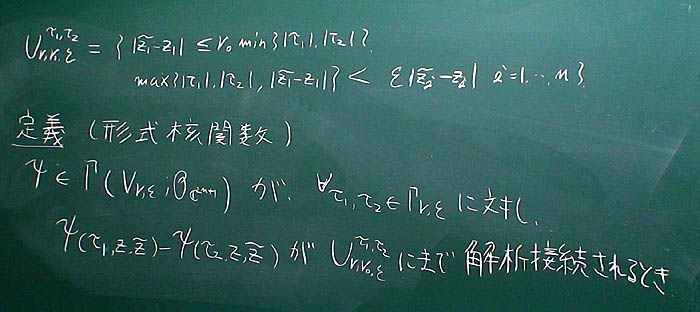 U_{r,r_0,ε}^{τ_1,τ_2} = { |z̃_1-z_1| ≤ r_0 min{|τ_1|, |τ_2|},
max{|τ_1|, |τ_2|, |z̃_1-z_1|} < ε|z̃_i-z_i| i=1,…,n }
定義 (形式核関数)
ψ ∈ Γ(V_{r,ε}; O_{ℂ^{2n+1}}) が、∀τ_1, τ_2 ∈ Γ_{r,ε} に対し、
ψ(τ_1,z,z̃)-ψ(τ_2,z,z̃) が U_{r,r_0,ε}^{τ_1,τ_2} にまで 解析接続されるとき